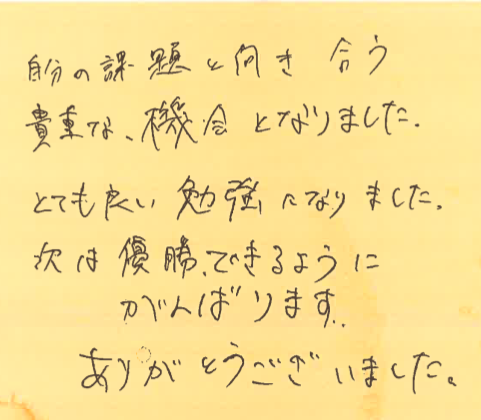 自分の課題と向き合う
貴重な、機会となりました.
とても良い勉強になりました.
次は優勝、できるように
がんばります.
ありがとうございました。